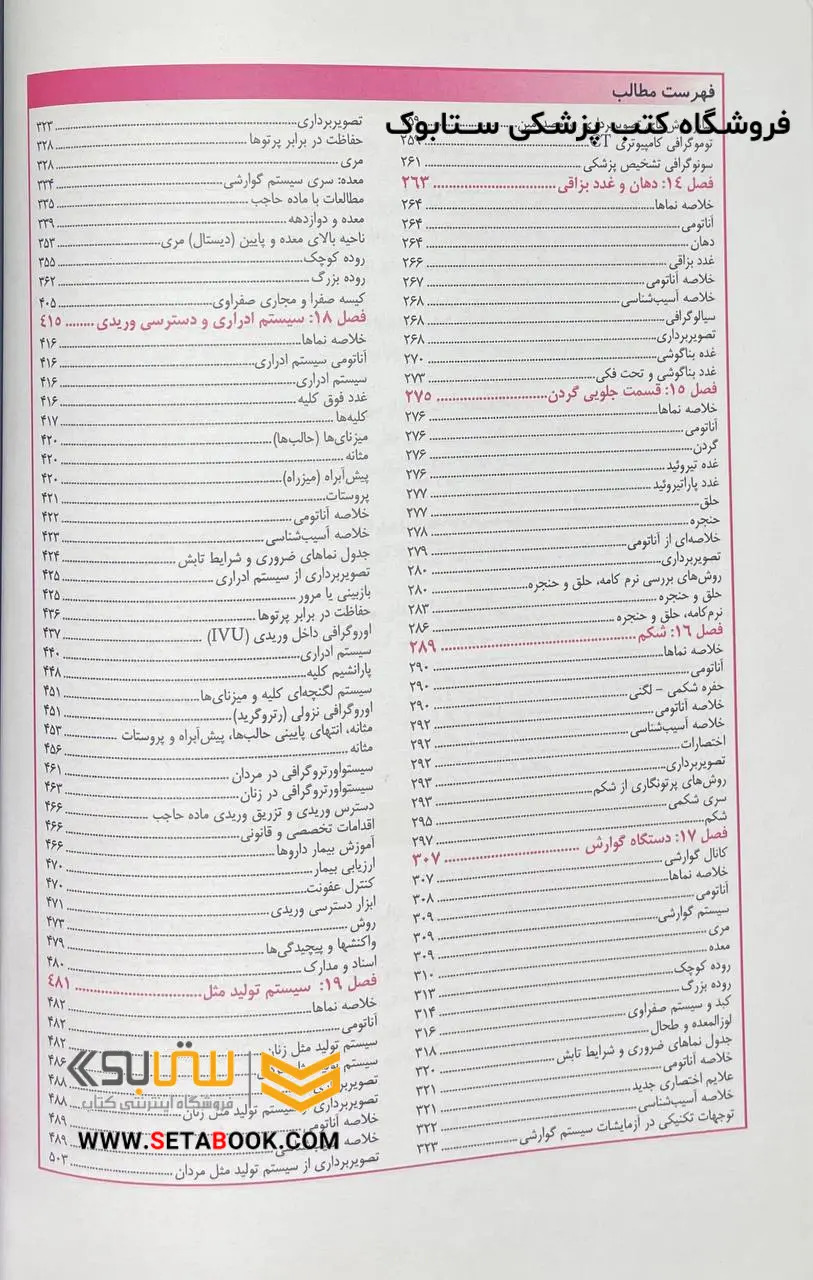 فهرست مطالب
فروشگاه کتب پزشکی ستابوک
توموگرافی کامپیوتری CT
سونوگرافی تشخیص پزشکی ۲۶۱
فصل ۱۴: دهان و غدد بزاقی ۲۶۳
خلاصه نماها ۲۶۴
آناتومی ۲۶۴
دهان ۲۶۴
غدد بزاقی ۲۶۶
خلاصه آناتومی ۲۶۷
خلاصه آسیب‌شناسی ۲۶۸
سیالوگرافی ۲۶۸
تصویربرداری ۲۶۸
غده بناگوشی ۲۷۰
غدد بناگوشی و تحت فکی ۲۷۳
فصل ۱۵: قسمت جلویی گردن ۲۷۵
خلاصه نماها ۲۷۶
آناتومی ۲۷۶
گردن ۲۷۶
غده تیروئید ۲۷۶
غدد پاراتیروئید ۲۷۷
حلق ۲۷۷
حنجره ۲۷۸
خلاصه‌ای از آناتومی ۲۷۹
تصویربرداری ۲۸۰
روش‌های بررسی نرم کامه، حلق و حنجره ۲۸۰
حلق و حنجره ۲۸۳
نرم‌کامه، حلق و حنجره ۲۸۶
فصل ۱۶: شکم ۲۸۹
خلاصه نماها ۲۹۰
آناتومی ۲۹۰
حفره شکمی - لگنی ۲۹۰
خلاصه آناتومی ۲۹۲
خلاصه آسیب‌شناسی ۲۹۲
اختصارات ۲۹۲
تصویربرداری ۲۹۳
روش‌های پرتونگاری از شکم ۲۹۳
سری شکمی ۲۹۵
شکم ۲۹۷
فصل ۱۷: دستگاه گوارش ۳۰۷
کانال گوارشی ۳۰۷
خلاصه نماها ۳۰۸
آناتومی ۳۰۹
سیستم گوارشی ۳۰۹
مری ۳۰۹
معده ۳۱۰
روده کوچک ۳۱۳
روده بزرگ ۳۱۴
کبد و سیستم صفراوی ۳۱۶
لوزالمعده و طحال ۳۱۸
جدول نماهای ضروری و شرایط تابش ۳۲۰
خلاصه آناتومی ۳۲۱
علایم اختصاری جدید ۳۲۱
خلاصه آسیب‌شناسی ۳۲۲
توجهات تکنیکی در آزمایشات سیستم گوارشی ۳۲۳
تصویربرداری ۳۲۳
حفاظت در برابر پرتوها ۳۲۸
مری ۳۲۸
معده: سری سیستم گوارشی ۳۳۴
مطالعات با ماده حاجب ۳۳۵
معده و دوازدهه ۳۳۹
ناحیه بالای معده و پایین (دیستال) مری ۳۵۳
روده کوچک ۳۵۵
روده بزرگ ۳۶۲
کیسه صفرا و مجاری صفراوی ۴۰۵
فصل ۱۸: سیستم ادراری و دسترسی وریدی ۴۱۵
خلاصه نماها ۴۱۶
آناتومی سیستم ادراری ۴۱۶
سیستم ادراری ۴۱۶
غدد فوق کلیه ۴۱۶
کلیه‌ها ۴۱۷
میزنای‌ها (حالب‌ها) ۴۲۰
مثانه ۴۲۰
پیش‌آبراه (میزراه) ۴۲۰
پروستات ۴۲۱
خلاصه آناتومی ۴۲۲
خلاصه آسیب‌شناسی ۴۲۳
جدول نماهای ضروری و شرایط تابش ۴۲۴
تصویربرداری از سیستم ادراری ۴۲۵
بازبینی یا مرور ۴۲۵
حفاظت در برابر پرتوها ۴۳۶
اوروگرافی داخل وریدی (IVU) ۴۳۷
سیستم ادراری ۴۴۰
پارانشیم کلیه ۴۴۸
سیستم لگنچه‌ای کلیه و میزنای‌ها ۴۵۱
اوروگرافی نزولی (رتروگرید) ۴۵۱
مثانه، انتهای پایینی حالب‌ها، پیش‌آبراه و پروستات ۴۵۳
مثانه ۴۵۶
سیستواورتروگرافی در مردان ۴۶۱
سیستواورتروگرافی در زنان ۴۶۳
دسترس وریدی و تزریق وریدی ماده حاجب ۴۶۶
اقدامات تخصصی و قانونی ۴۶۶
آموزش بیمار داروها ۴۶۶
ارزیابی بیمار ۴۷۰
کنترل عفونت ۴۷۰
ابزار دسترسی وریدی ۴۷۱
روش ۴۷۳
واکنشها و پیچیدگی‌ها ۴۷۹
اسناد و مدارک ۴۸۰
فصل ۱۹: سیستم تولید مثل ۴۸۱
خلاصه نماها ۴۸۲
آناتومی ۴۸۲
سیستم تولید مثل زنان ۴۸۲
سیستم ۴۸۶
تصویربرداری ۴۸۸
تصویربرداری از سیستم تولید مثل زنان ۴۸۸
خلاصه آناتومی ۴۸۹
خلاصه ۴۸۹
تصویربرداری از سیستم تولید مثل مردان ۵۰۳
ستابوک
فروشگاه اینترنتی کتاب
WWW.SETABOOK.COM